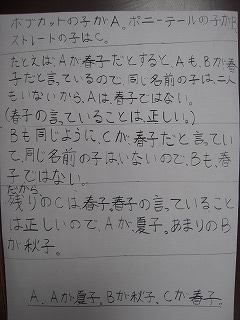 ボブカットの子がA。ポニーテールの子がB
ストレートの子はC。
たとえば、Aが春子だとすると、Aも、Bが春
子だと言っているので、同じ名前の子は、二人
もいないから、Aは、春子ではない。
(春子の言っていることは、正しい。)
Bも同じように、Cが、春子だと言ってい
て、同じ名前の子は、いないので、Bも、春
子ではない。
だから
残りのCは、春子。春子の言っていること
は正しいので、Aが、夏子。あまりのB
が秋子。
A、Aが夏子。Bが秋子、Cが春子。